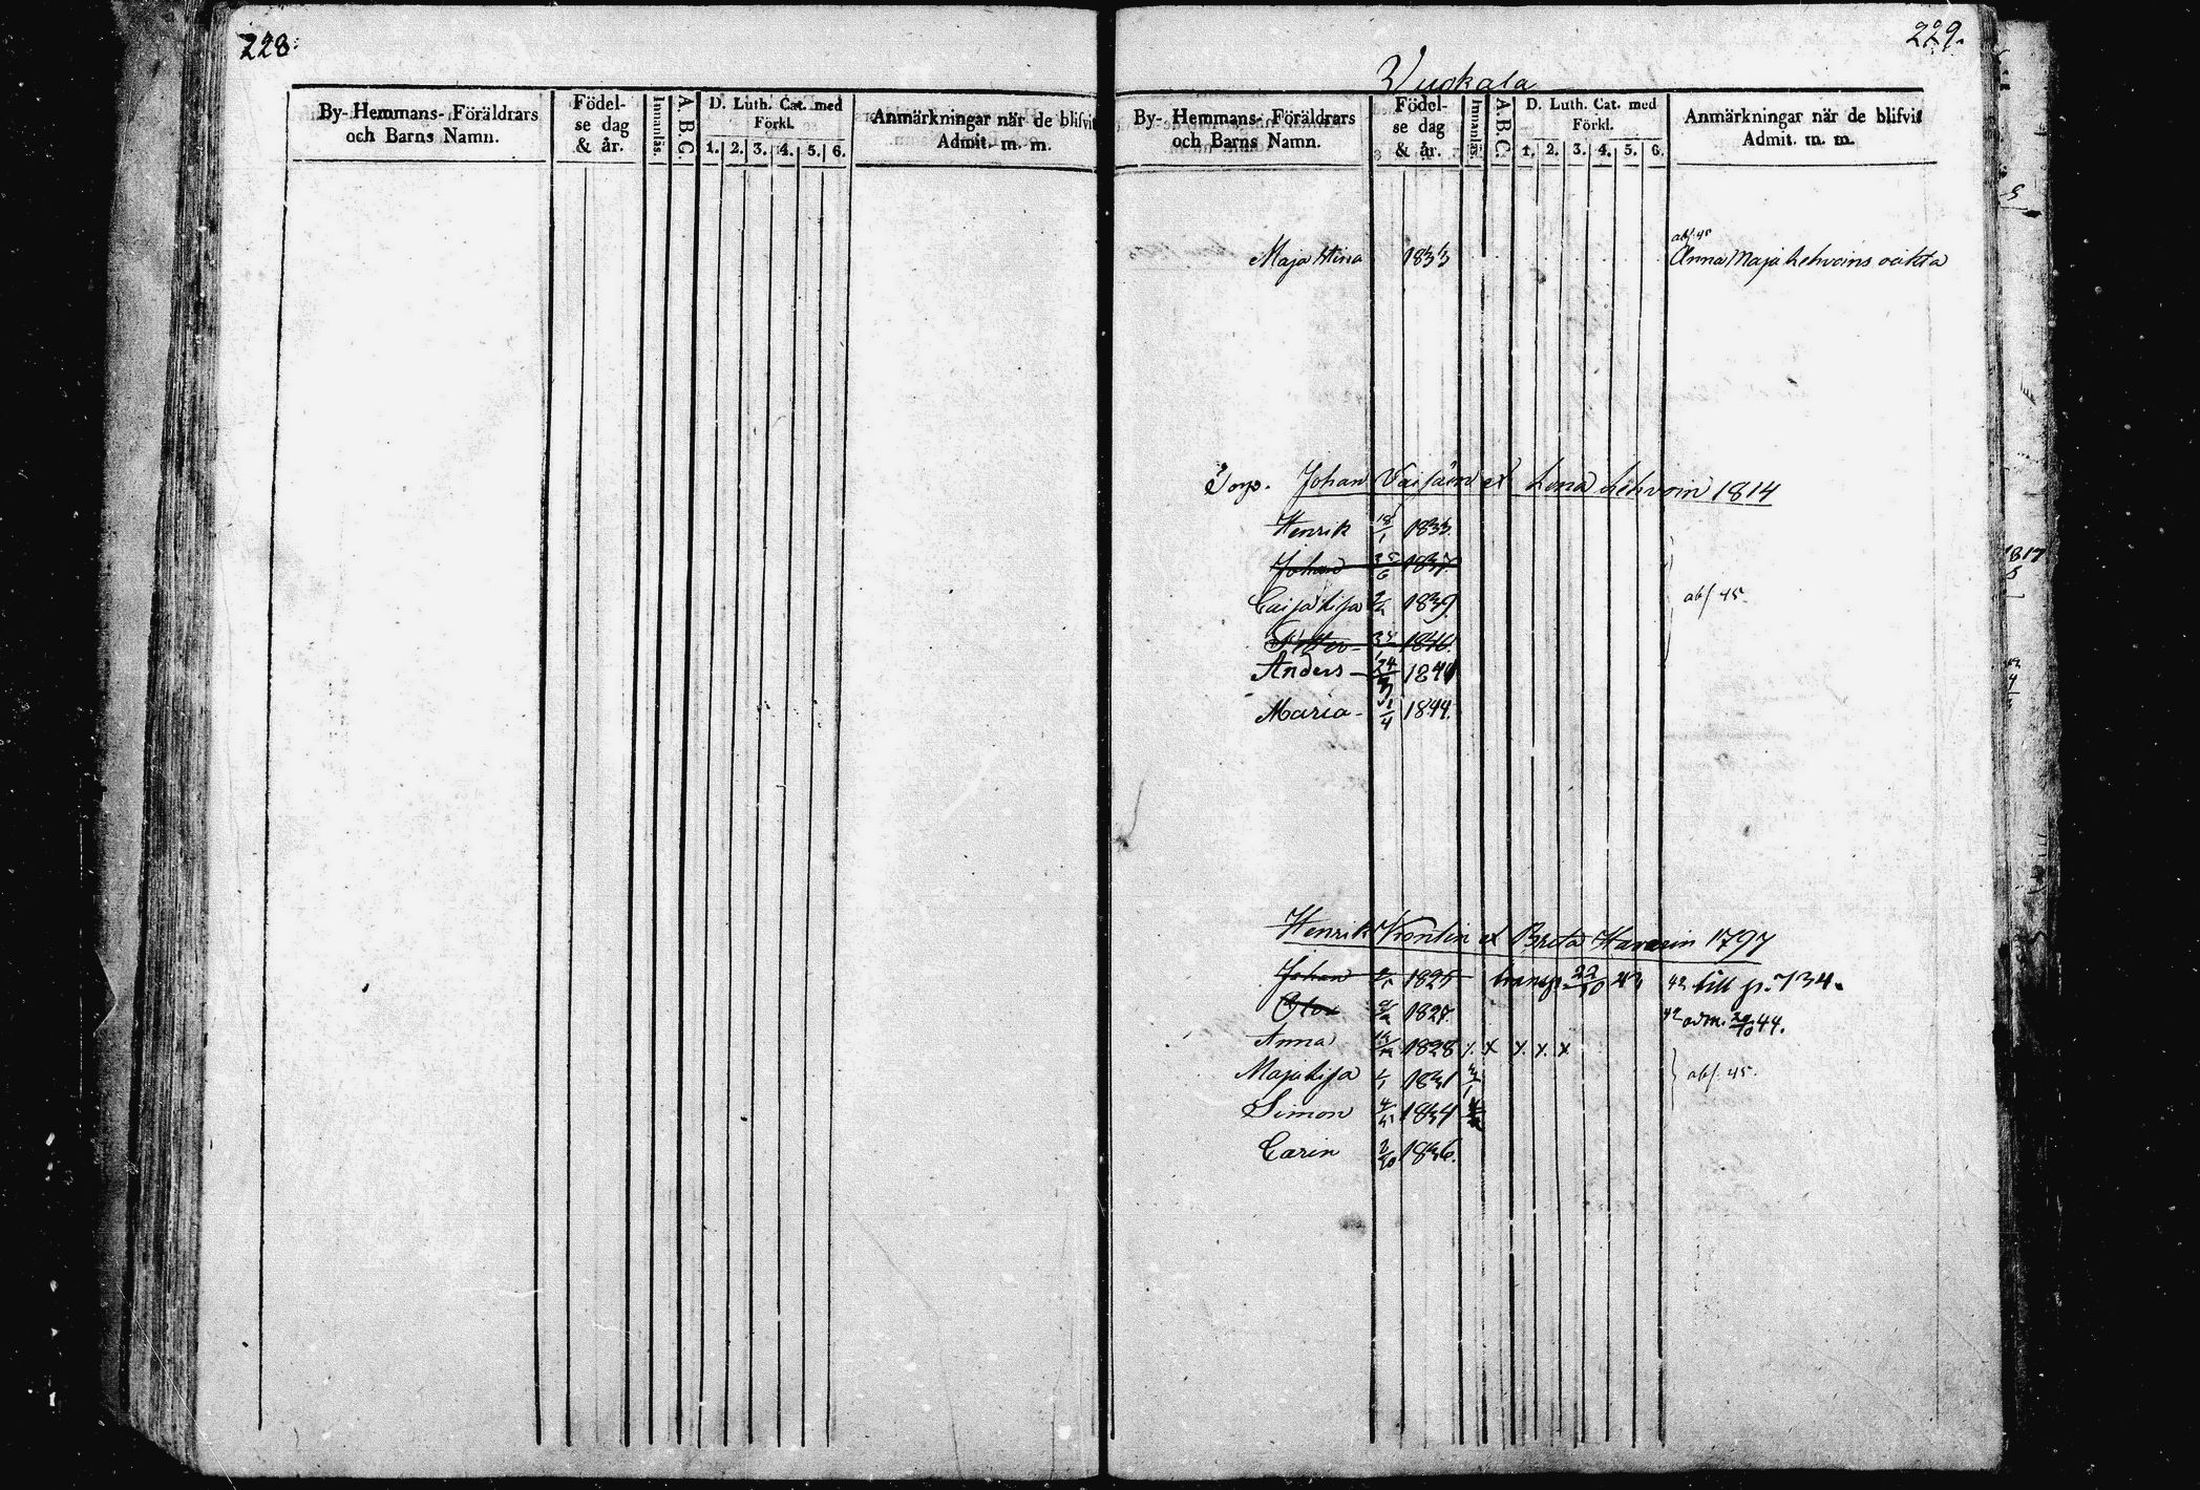 228.
By- Hemmans- Föräldrars och Barns Namn.
Födel-se dag & år.
Innanläs.
A.B.C.
D. Luth. Cat. med Förkl.
1. 2. 3. 4. 5. 6.
Anmärkningar när de blifvit Admit. m. m.
229.
Wuokala
By- Hemmans- Föräldrars och Barns Namn.
Födel-se dag & år.
Innanläs.
A.B.C.
D. Luth. Cat. med Förkl.
1. 2. 3. 4. 5. 6.
Anmärkningar när de blifvit Admit. m. m.
abs. 45
Maja Stina 1833 Anna Maja Lehvoins oäkta
Torp. Johan Väisäen et Lena Lehvoin 1814
Henrik 18/1 1833.
Johan 1837.
Caisa Lisa 1839. abs 45
Petter
Anders 24 1841
Maria 1/4 1844.
Henrik Krontin et Breta Havarin 1797
Johan 1825 transp. 22/10 42 till p. 734.
Olov 1827. 42 adm. 20/10 44.
Anna 1828 x x x x x
Maja Lisa 1/1 1831 abs. 45.
Simon 1834
Carin 2/10 1836.